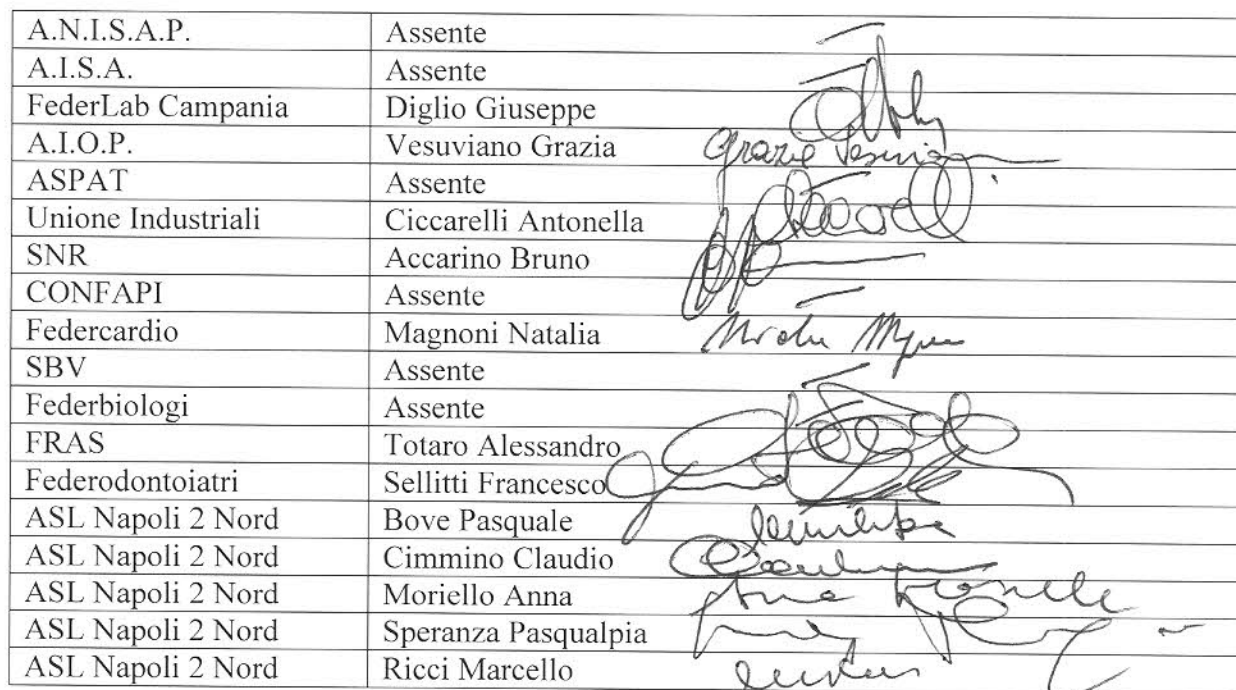 A.N.I.S.A.P. Assente
A.I.S.A. Assente
FederLab Campania Diglio Giuseppe
A.I.O.P. Vesuviano Grazia Grazia Vesuviano
ASPAT Assente
Unione Industriali Ciccarelli Antonella
SNR Accarino Bruno
CONFAPI Assente
Federcardio Magnoni Natalia
SBV Assente
Federbiologi Assente
FRAS Totaro Alessandro
Federodontoiatri Sellitti Francesco
ASL Napoli 2 Nord Bove Pasquale
ASL Napoli 2 Nord Cimmino Claudio
ASL Napoli 2 Nord Moriello Anna
ASL Napoli 2 Nord Speranza Pasqualpia
ASL Napoli 2 Nord Ricci Marcello